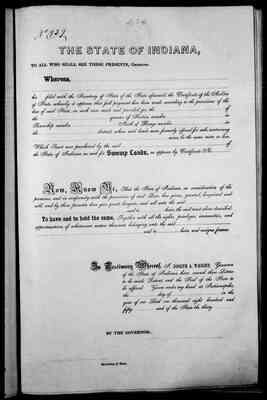 No. 827,
THE STATE OF INDIANA,
TO ALL WHO SHALL SEE THESE PRESENTS, GREETING:
Whereas,
ha filed with the Secretary of State of the State aforesaid, the Certificate of the Auditor
of State whereby it appears that full payment has been made according to the provisions of the
law of said State, in such case made and provided, for the of
the quarter of Section number in
Township number of Range number in the
district where said lands were formerly offered for sale, containing
acres, be the same more or less,
Which Tract was purchased by the said of
the State of Indiana, as and for Swamp Lands, as appears by Certificate No.
Now, Know Ye, That the State of Indiana, in consideration of the
premises, and in conformity with the provisions of said Law, has given, granted, bargained and
sold, and by these presents does give, grant, bargain, and sell unto the said
and to heirs, the said tract above described:
To have and to hold the same, Together with all the rights, privileges, immunities, and
appurtenances of whatsoever nature thereunto belonging unto the said
and to heirs and assigns forever.
In Testimony Whereof, I, JOSEPH A. WRIGHT, Governor
of the State of Indiana, have caused these Letters
to be made Patent, and the Seal of the State to
be affixed. Given under my hand at Indianapolis,
the day of in the
year of our Lord one thousand eight hundred and
fifty and of the State the thirty
BY THE GOVERNOR,
Secretary of State.